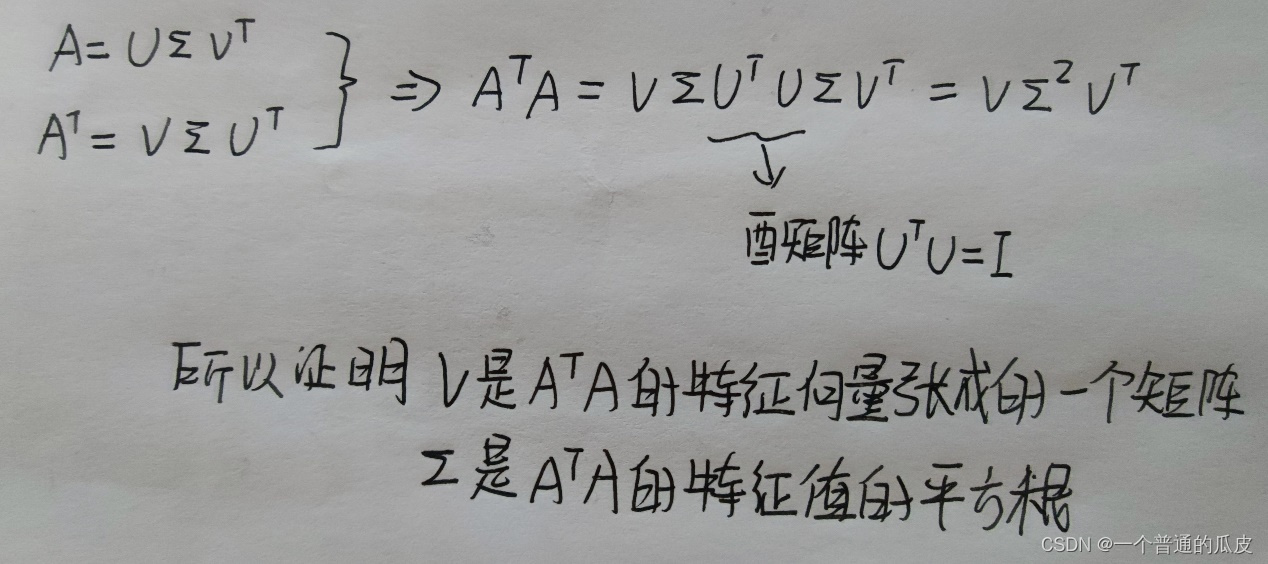 A = UΣV^T
A^T = VΣU^T
} ⇒ A^T A = VΣU^T UΣV^T = VΣ²V^T
酉矩阵 U^T U = I
所以证明 V是A^T A的特征向量张成的一个矩阵
Σ是A^T A的特征值的平方根
CSDN @一个普通的瓜皮